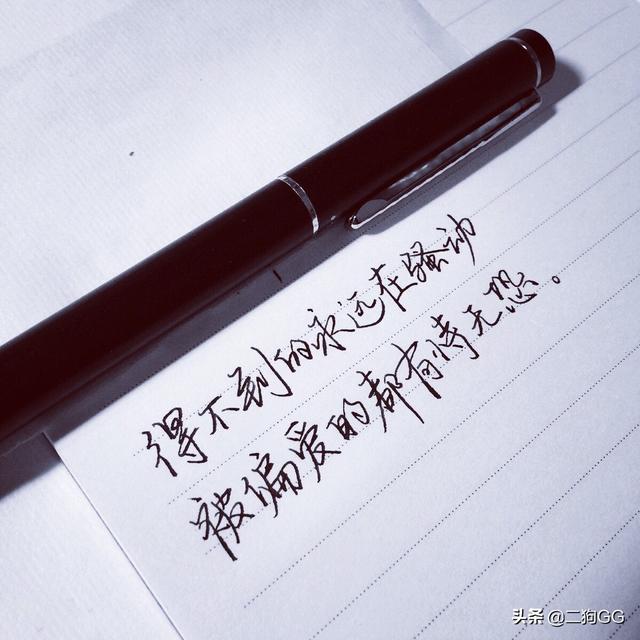 得不到的永远在骚动
被偏爱的都有恃无恐。
头条 @二狗GG